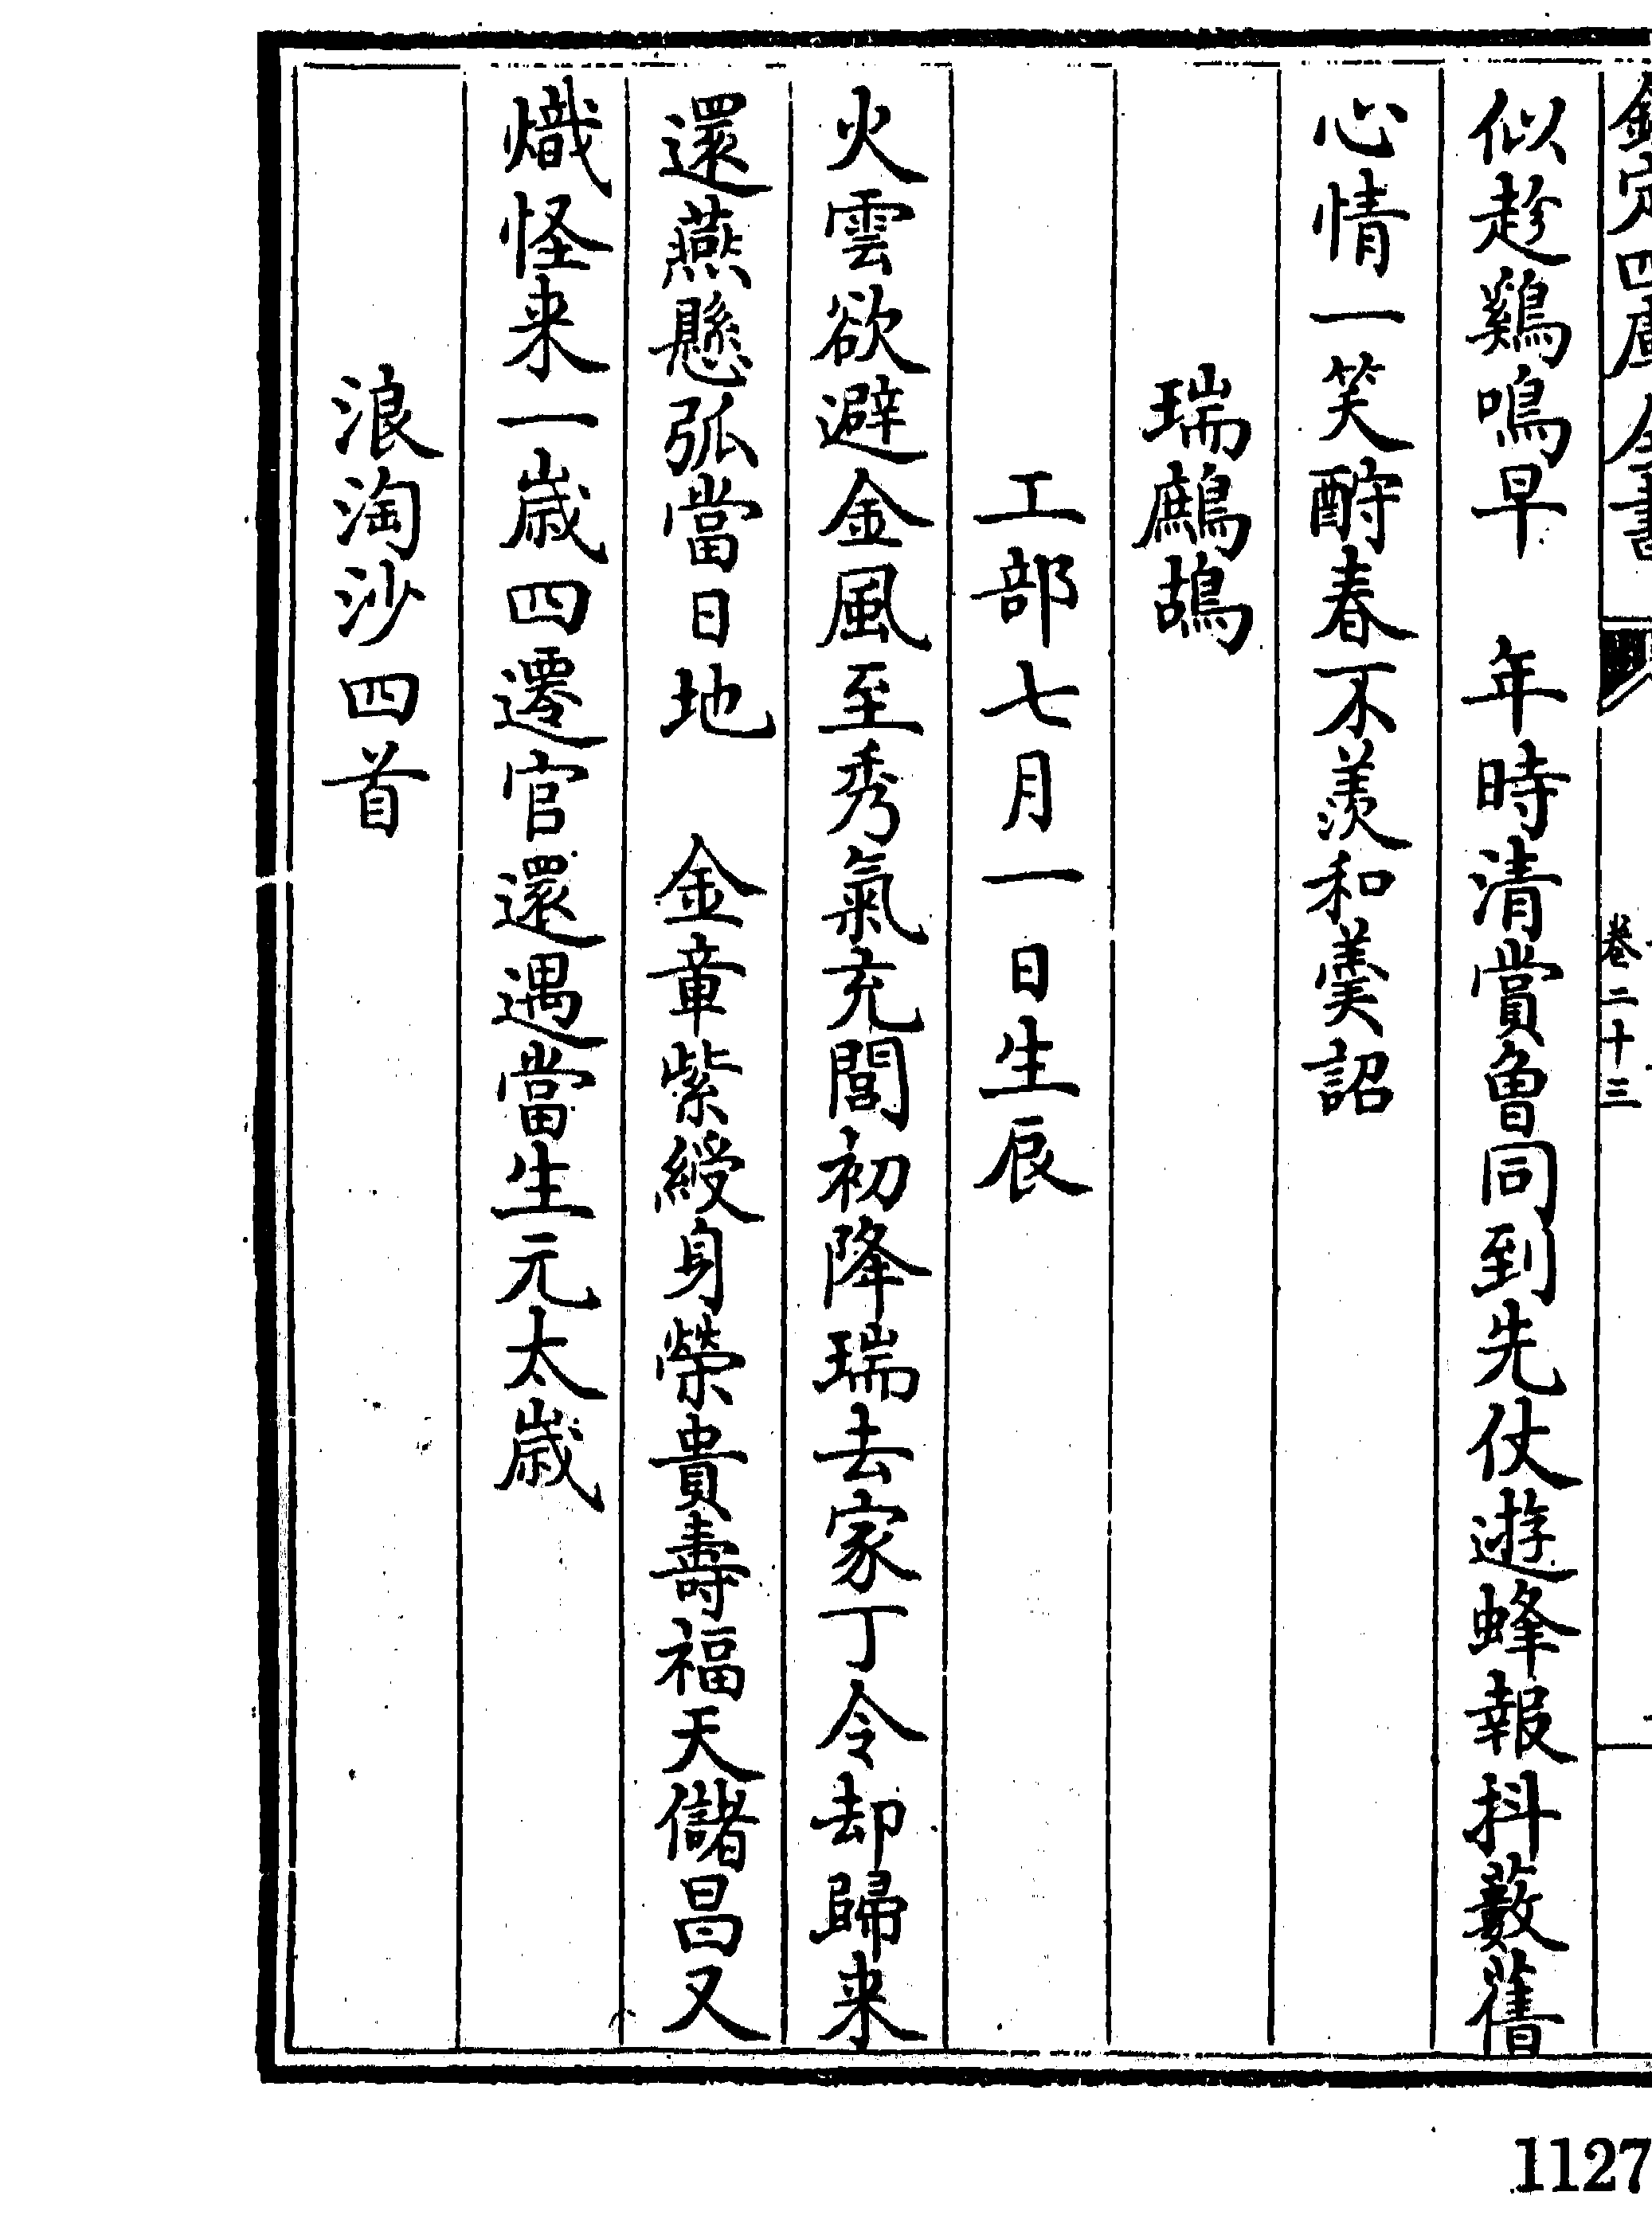 欽定四庫全書
卷二十三
似趁鷄鳴早　年時清賞曾同到先仗遊蜂報抖藪舊
心情一笑酹春不羨和羹詔
瑞鷓鴣
工部七月一日生辰
火雲欲避金風至秀氣充閭初降瑞去家丁令却歸来
還燕懸弧當日地　金章紫綬身榮貴壽福天儲昌又
熾怪来一歲四遷官還遇當生元太歲
浪淘沙四首
1127